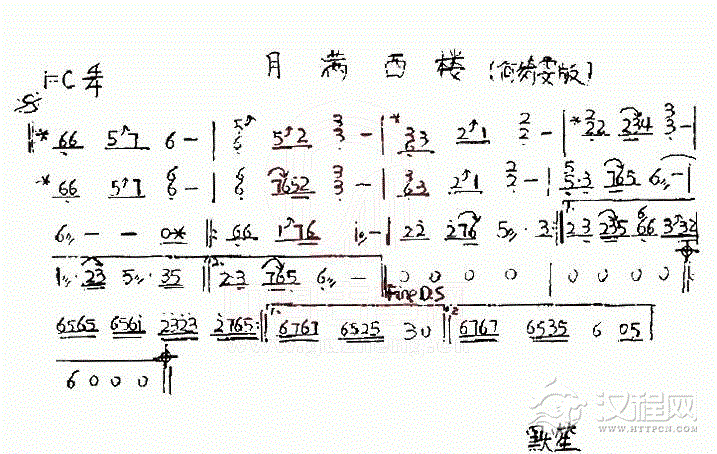 月满西楼 (何绮雯版)
1=C 4/4
66 5 7 6 - | 6 5 2 3 - | 63 2 1 2 - | 22 234 3 - |
66 5 7 6 - | 6 7652 3 - | 63 2 1 2 - | 5·3 765 6 - |
6 - - 0 |: 66 1 76 1 - | 22 276 5 · 3 :| 1. 23 235 66 3 32
1 · 23 5 · 35 :| 2. 2·3 765 6 - | 0 0 0 0 | 0 0 0 0 |
Fine D.S
6565 6561 2323 2765 :| 1. 6767 6525 3 0 :| 2. 6767 6535 6 05 |
6 0 0 0 ||
默笙
汉程网
WWW.HTTPCN.COM